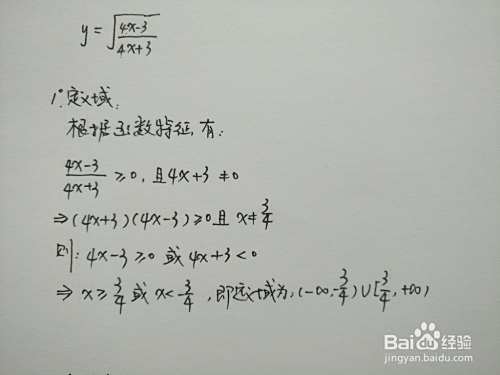 y=√((4x-3)/(4x+3))
1°定义域:
根据函数特征,有:
(4x-3)/(4x+3)≥0,且4x+3≠0
⇒(4x+3)(4x-3)≥0且x≠3/4
则:4x-3≥0或4x+3<0
⇒x≥3/4或x<-3/4,即定义域为:(-∞,-3/4)∪[3/4,+∞)
Baidu经验
jingyan.baidu.com